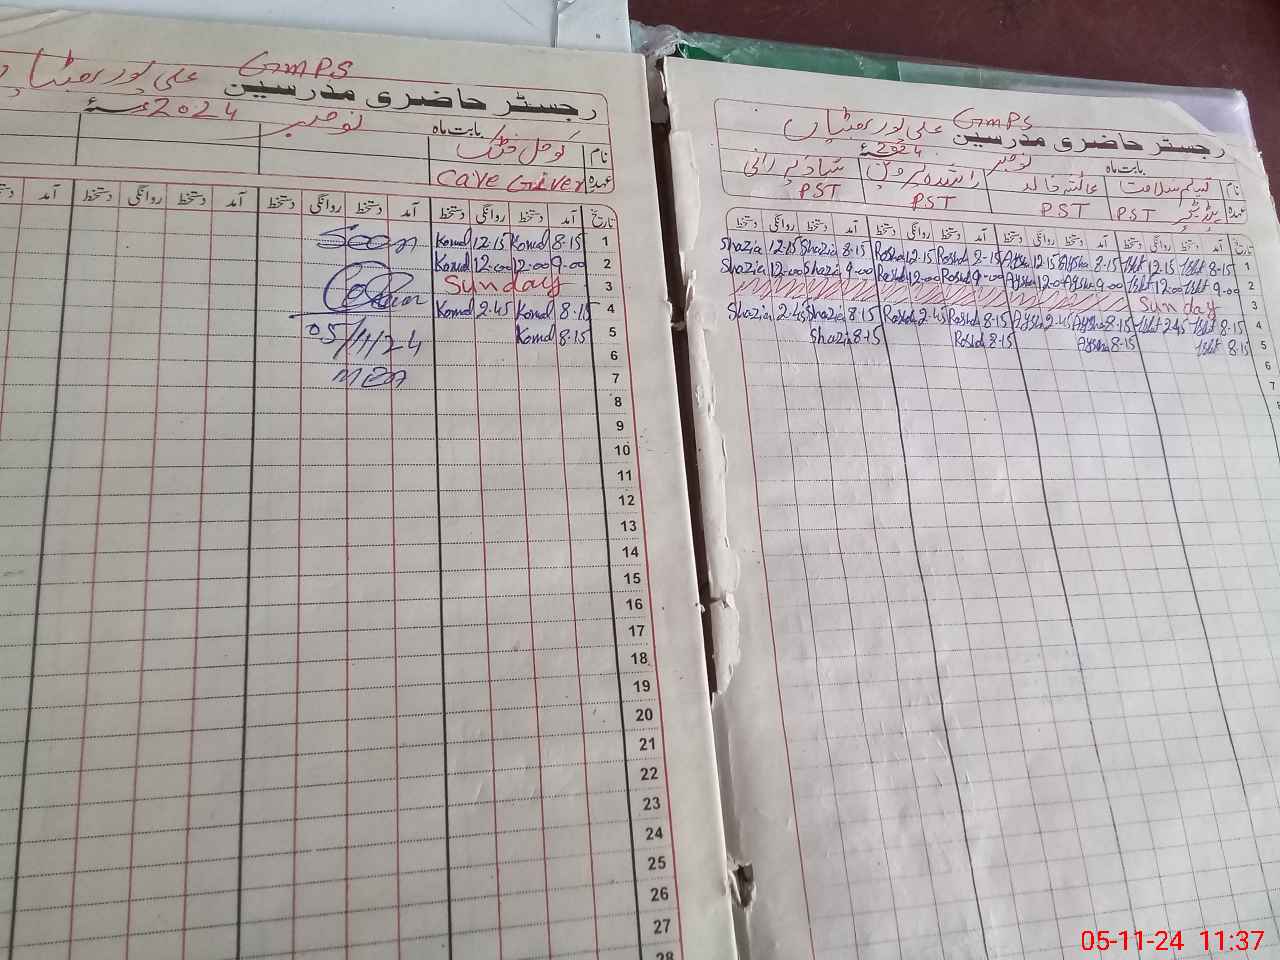 GMPS علی پور بھٹیاں
رجسٹر حاضری مدرسین
بابت ماہ نومبر 2024ء
نام کومل
عہدہ Cave Giver
تاریخ آمد دستخط روانگی دستخط آمد دستخط روانگی دستخط آمد دستخط روانگی دستخط آمد دستخط
1 8-15 Komal 12-15 Komal Seen
2 9-00 12-00 12-00 Komal
3 Sunday
4 8-15 Komal 2-45 Komal
5 8-15 Komal 05/11/24
6
7 MEA
8
9
10
11
12
13
14
15
16
17
18
19
20
21
22
23
24
25
26
27
28
GMPS علی پور بھٹیاں
رجسٹر حاضری مدرسین
بابت ماہ نومبر 2024ء
نام عائشہ خالد شازیہ رانی
عہدہ PST PST PST PST
تاریخ آمد دستخط روانگی دستخط آمد دستخط روانگی دستخط آمد دستخط روانگی دستخط آمد دستخط روانگی دستخط
1 8-15 12-15 8-15 Aysha 12-15 Aysha 8-15 Roshd 12-15 Roshd 8-15 Shazia 12-15 Shazia
2 9-00 12-00 9-00 Aysha 12-00 Aysha 9-00 Roshd 12-00 Roshd 9-00 Shazia 12-00 Shazia
3 Sunday
4 8-15 2-45 8-15 Aysha 2-45 Aysha 8-15 Roshd 2-45 Roshd 8-15 Shazia 2-45 Shazia
5 8-15 8-15 Aysha 8-15 Roshd 8-15 Shazia
6
7
05-11-24 11:37